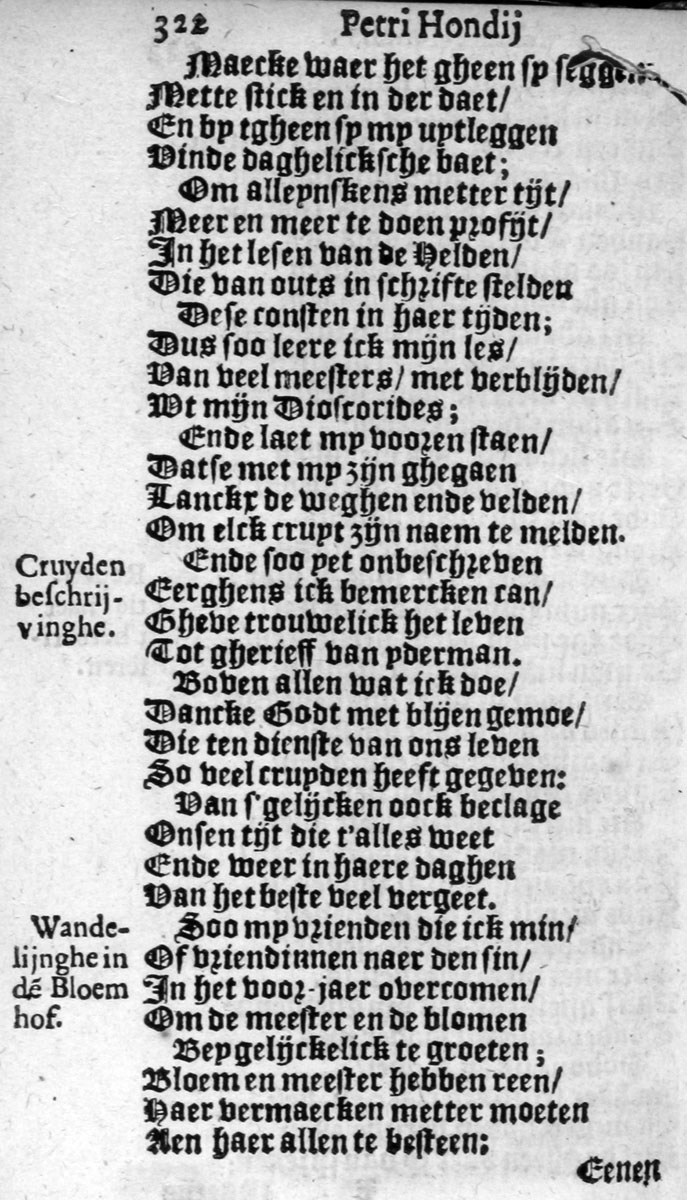 322 Petri Hondij
Maecke waer het gheen sy seggen
Mette stick en in der daet/
En by tgheen sy my uytleggen
Vinde daghelicksche baet;
Om alleynskens metter tijt/
Meer en meer te doen profijt/
In het lesen van de Helden/
Die van outs in schrifte stelden
Dese consten in haer tijden;
Dus soo leere ick mijn les/
Van veel meesters/ met verblijden/
Wt mijn Dioscorides;
Ende laet my vooren staen/
Datse met my zijn ghegaen
Lanckx de weghen ende velden/
Om elck cruyt zijn naem te melden.
Cruyden
beschrij-
vinghe.
Ende soo yet onbeschreven
Eerghens ick bemercken can/
Gheve trouwelick het leven
Tot gherieff van yderman.
Boven allen wat ick doe/
Dancke Godt met blijen gemoe/
Die ten dienste van ons leven
So veel cruyden heeft gegeven:
Van s'gelijcken oock beclage
Onsen tijt die t'alles weet
Ende weer in haere daghen
Van het beste veel vergeet.
Wande-
lijnghe in
dē Bloem
hof.
Soo my vrienden die ick min/
Of vriendinnen naer den sin/
In het voor-jaer overcomen/
Om de meester en de blomen
Bey gelijckelick te groeten;
Bloem en meester hebben reen/
Haer vermaecken metter moeten
Aen haer allen te besteen:
Eenen